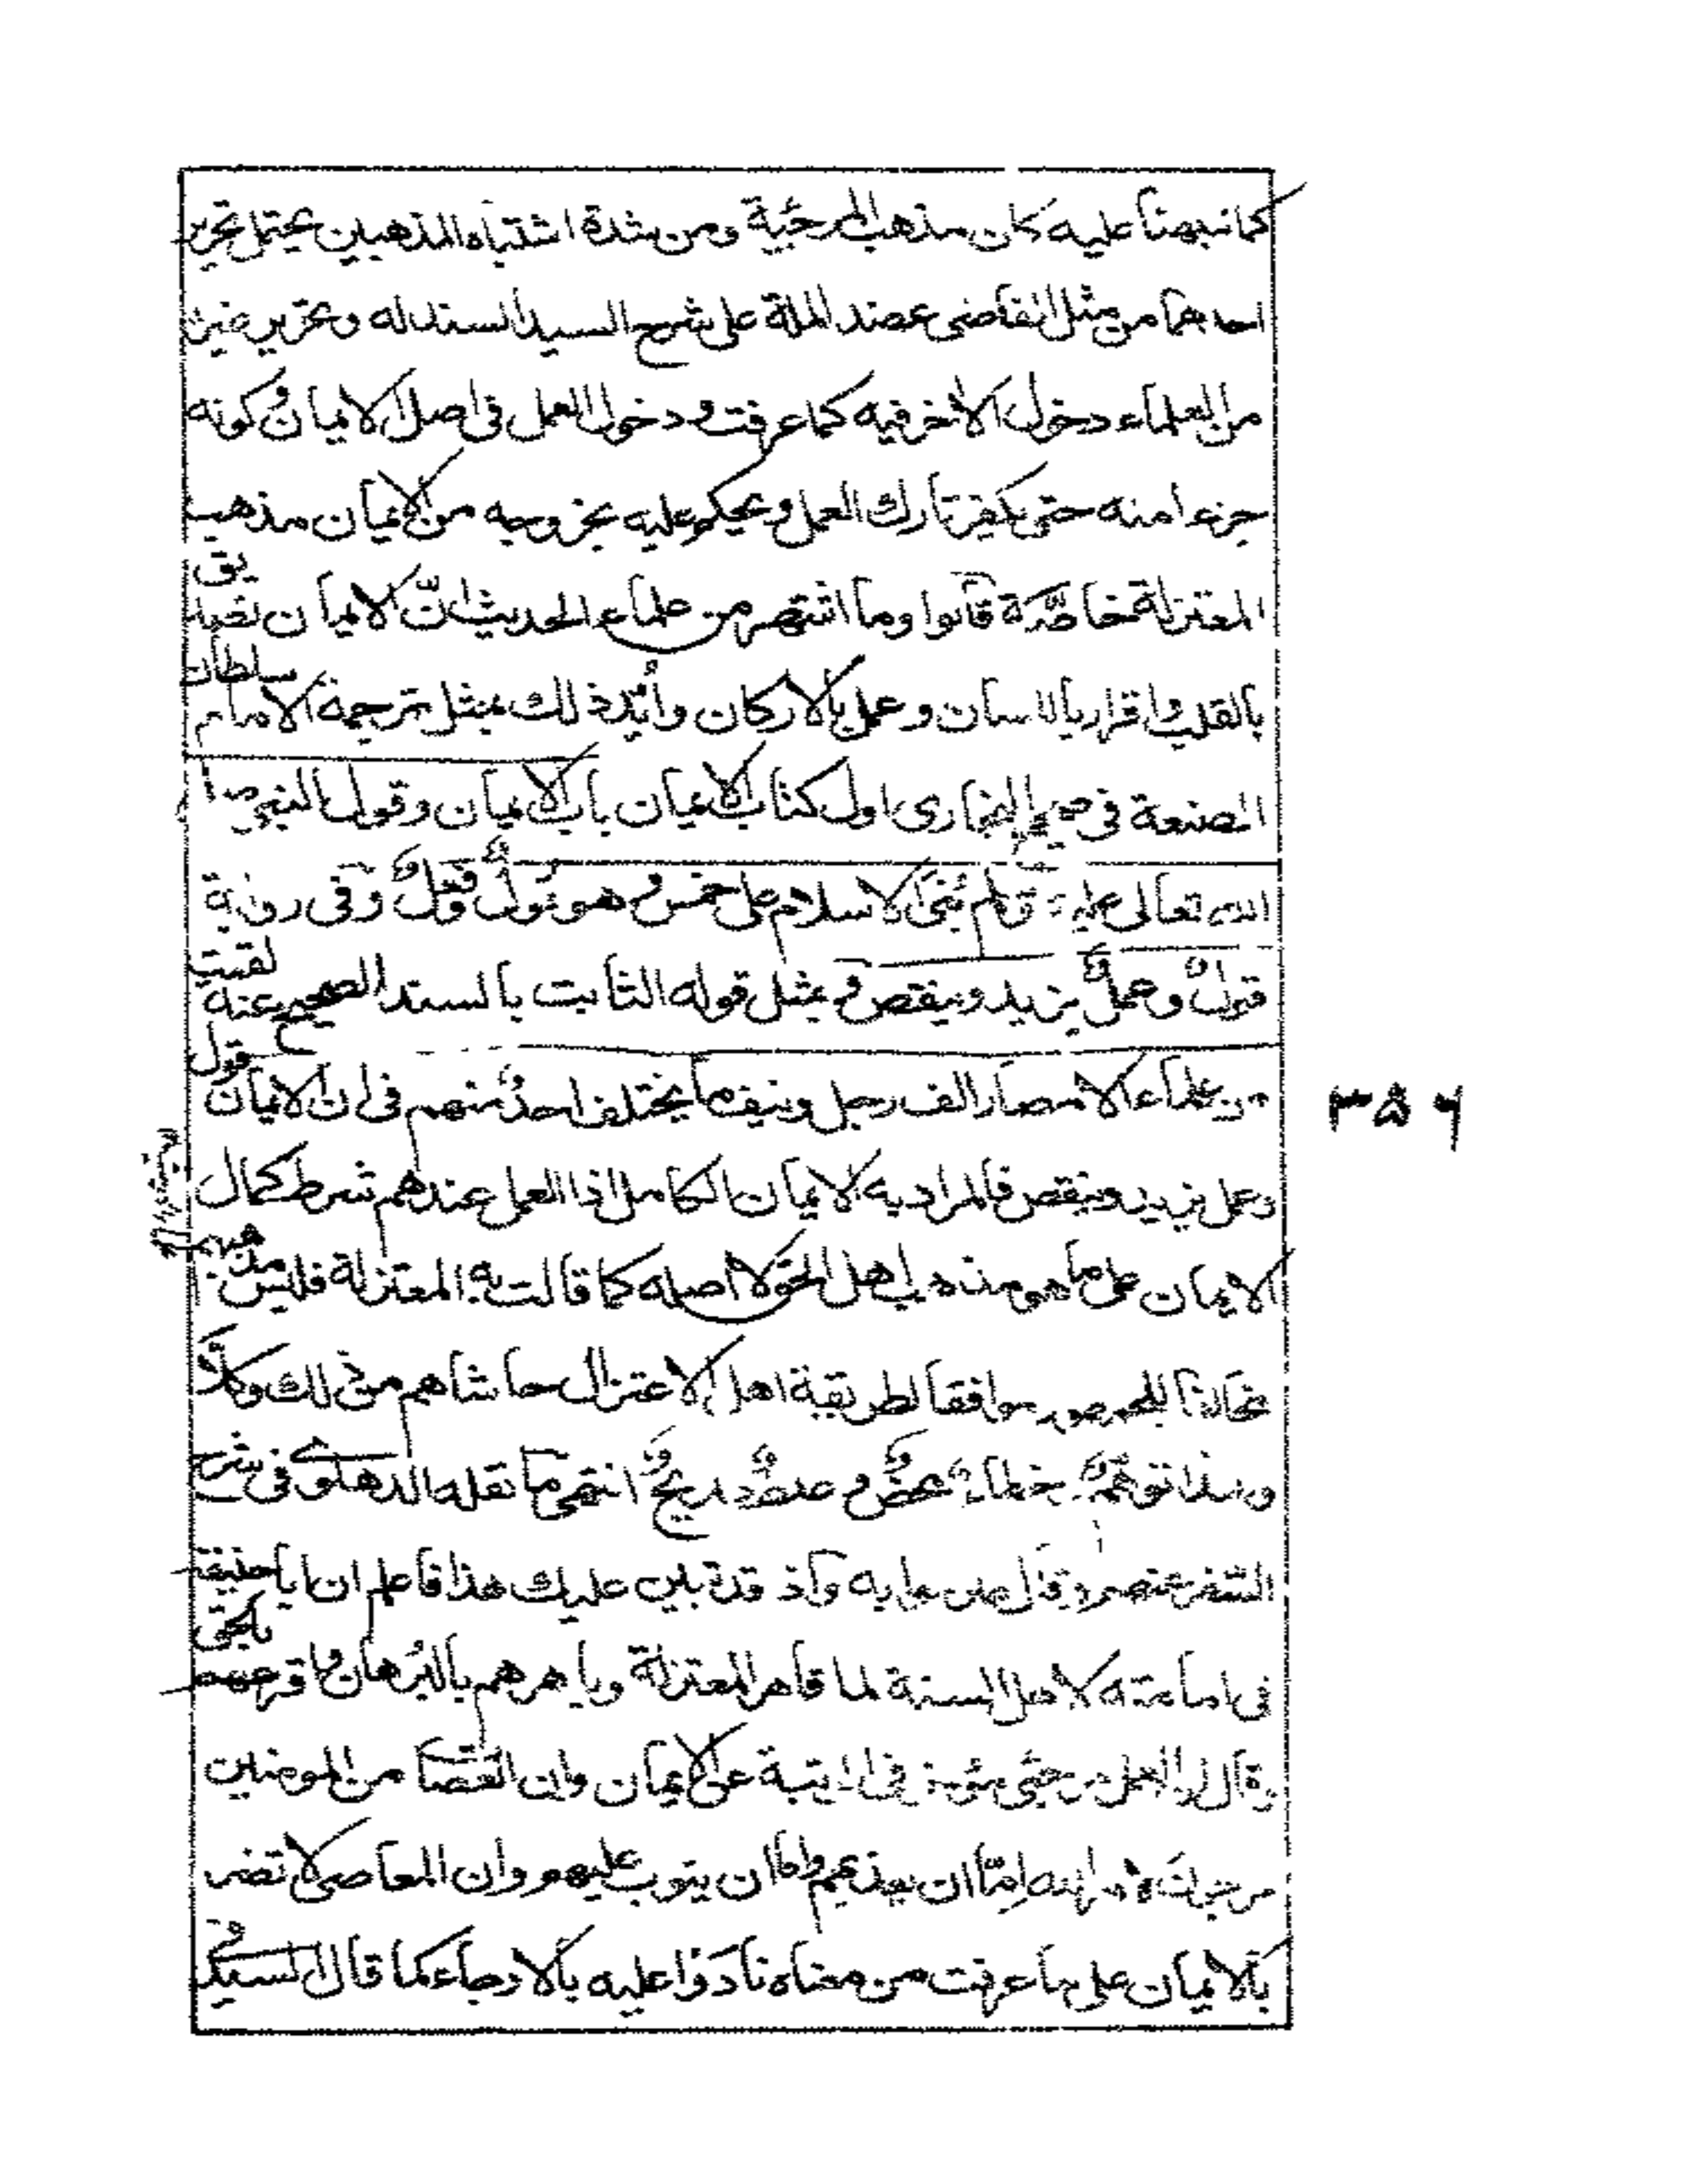 كما نبهنا عليه كان مذهب المرجئة ومن شدة اشتباه المذهبين يحتمل تحرير
احدهما من مثل القاضى عضد الملة على شرح السيد السند له وتحرير
من العلماء دخول الاخر فيه كما عرفت ودخول العمل فى اصل الايمان وكونه
جزءا منه حتى يكفر تارك العمل ويحكم عليه بخروجه من الايمان مذهب
المعتزلة خاصَّة قالوا وما اشتهر من علماء الحديث انّ الايمان تصديق
بالقلب واقرار باللسان وعمل بالاركان وأيّد ذلك بمثل ترجمة الامام سلطان
الصنعة فى صحيح البخارى اول كتاب الايمان باب الايمان وقول النبي صلى
الله تعالى عليه وسلم بُنىَ الاسلام على خمس وهو قولٌ وفعلٌ وفى رواية
قولٌ وعملٌ يزيد وينقص وبمثل قوله الثابت بالسند الصحيح عنه لقيت
من علماء الامصار الف رجل ونيف ما يختلف احدٌ منهم فى ان الايمان قول
وعمل يزيد وينقص فالمراد به الايمان الكامل اذ العمل عندهم شرط كمال
الايمان على ما هو مذهب اهل الحق لا اصله كما قالت به المعتزلة فليس مذهبهم
مخالفا للجمهور موافقا لطريقة اهل الاعتزال حاشاهم من ذلك وكلَّا
وهذا توهّمٌ خطاءٌ محضٌ و انتهى ما نقله الدهلوى فى شرح
السفر واذ قد تبين عليك هذا فاعلم ان ابا حنيفة
فى امامته لاهل السنة لما قاهر المعتزلة وباهرهم بالبُرهان واقرعهم بالحق
وقال ان العمل مرجئ مؤخر فى الرتبة عن الايمان وان العُصاة من المومنين
مرجون لامر الله إمّا ان يعذبهم واما ان يتوب عليهم وان المعاصى لا تضر
بالايمان على ما عرفت من معناه نادَوْا عليه بالارجاء كما قال السيد فى
٣٥٦